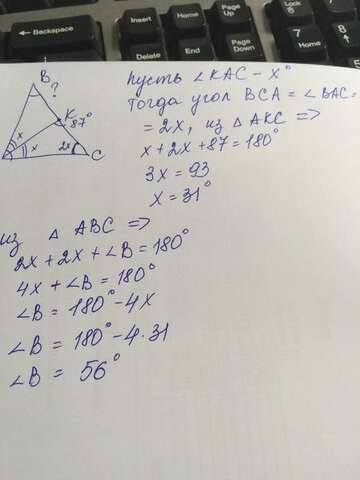 Backspace
Insert
Home
Page Up
Delete
End
Page Down
Num Lock
7 Home
8
B
?
K
87°
x
x
2x
C
пусть ∠KAC - x°
Тогда угол BCA = ∠BAC =
= 2x, из △ AKC =>
x + 2x + 87 = 180°
3x = 93
x = 31°
из △ ABC =>
2x + 2x + ∠B = 180°
4x + ∠B = 180°
∠B = 180° - 4x
∠B = 180° - 4·31
∠B = 56°